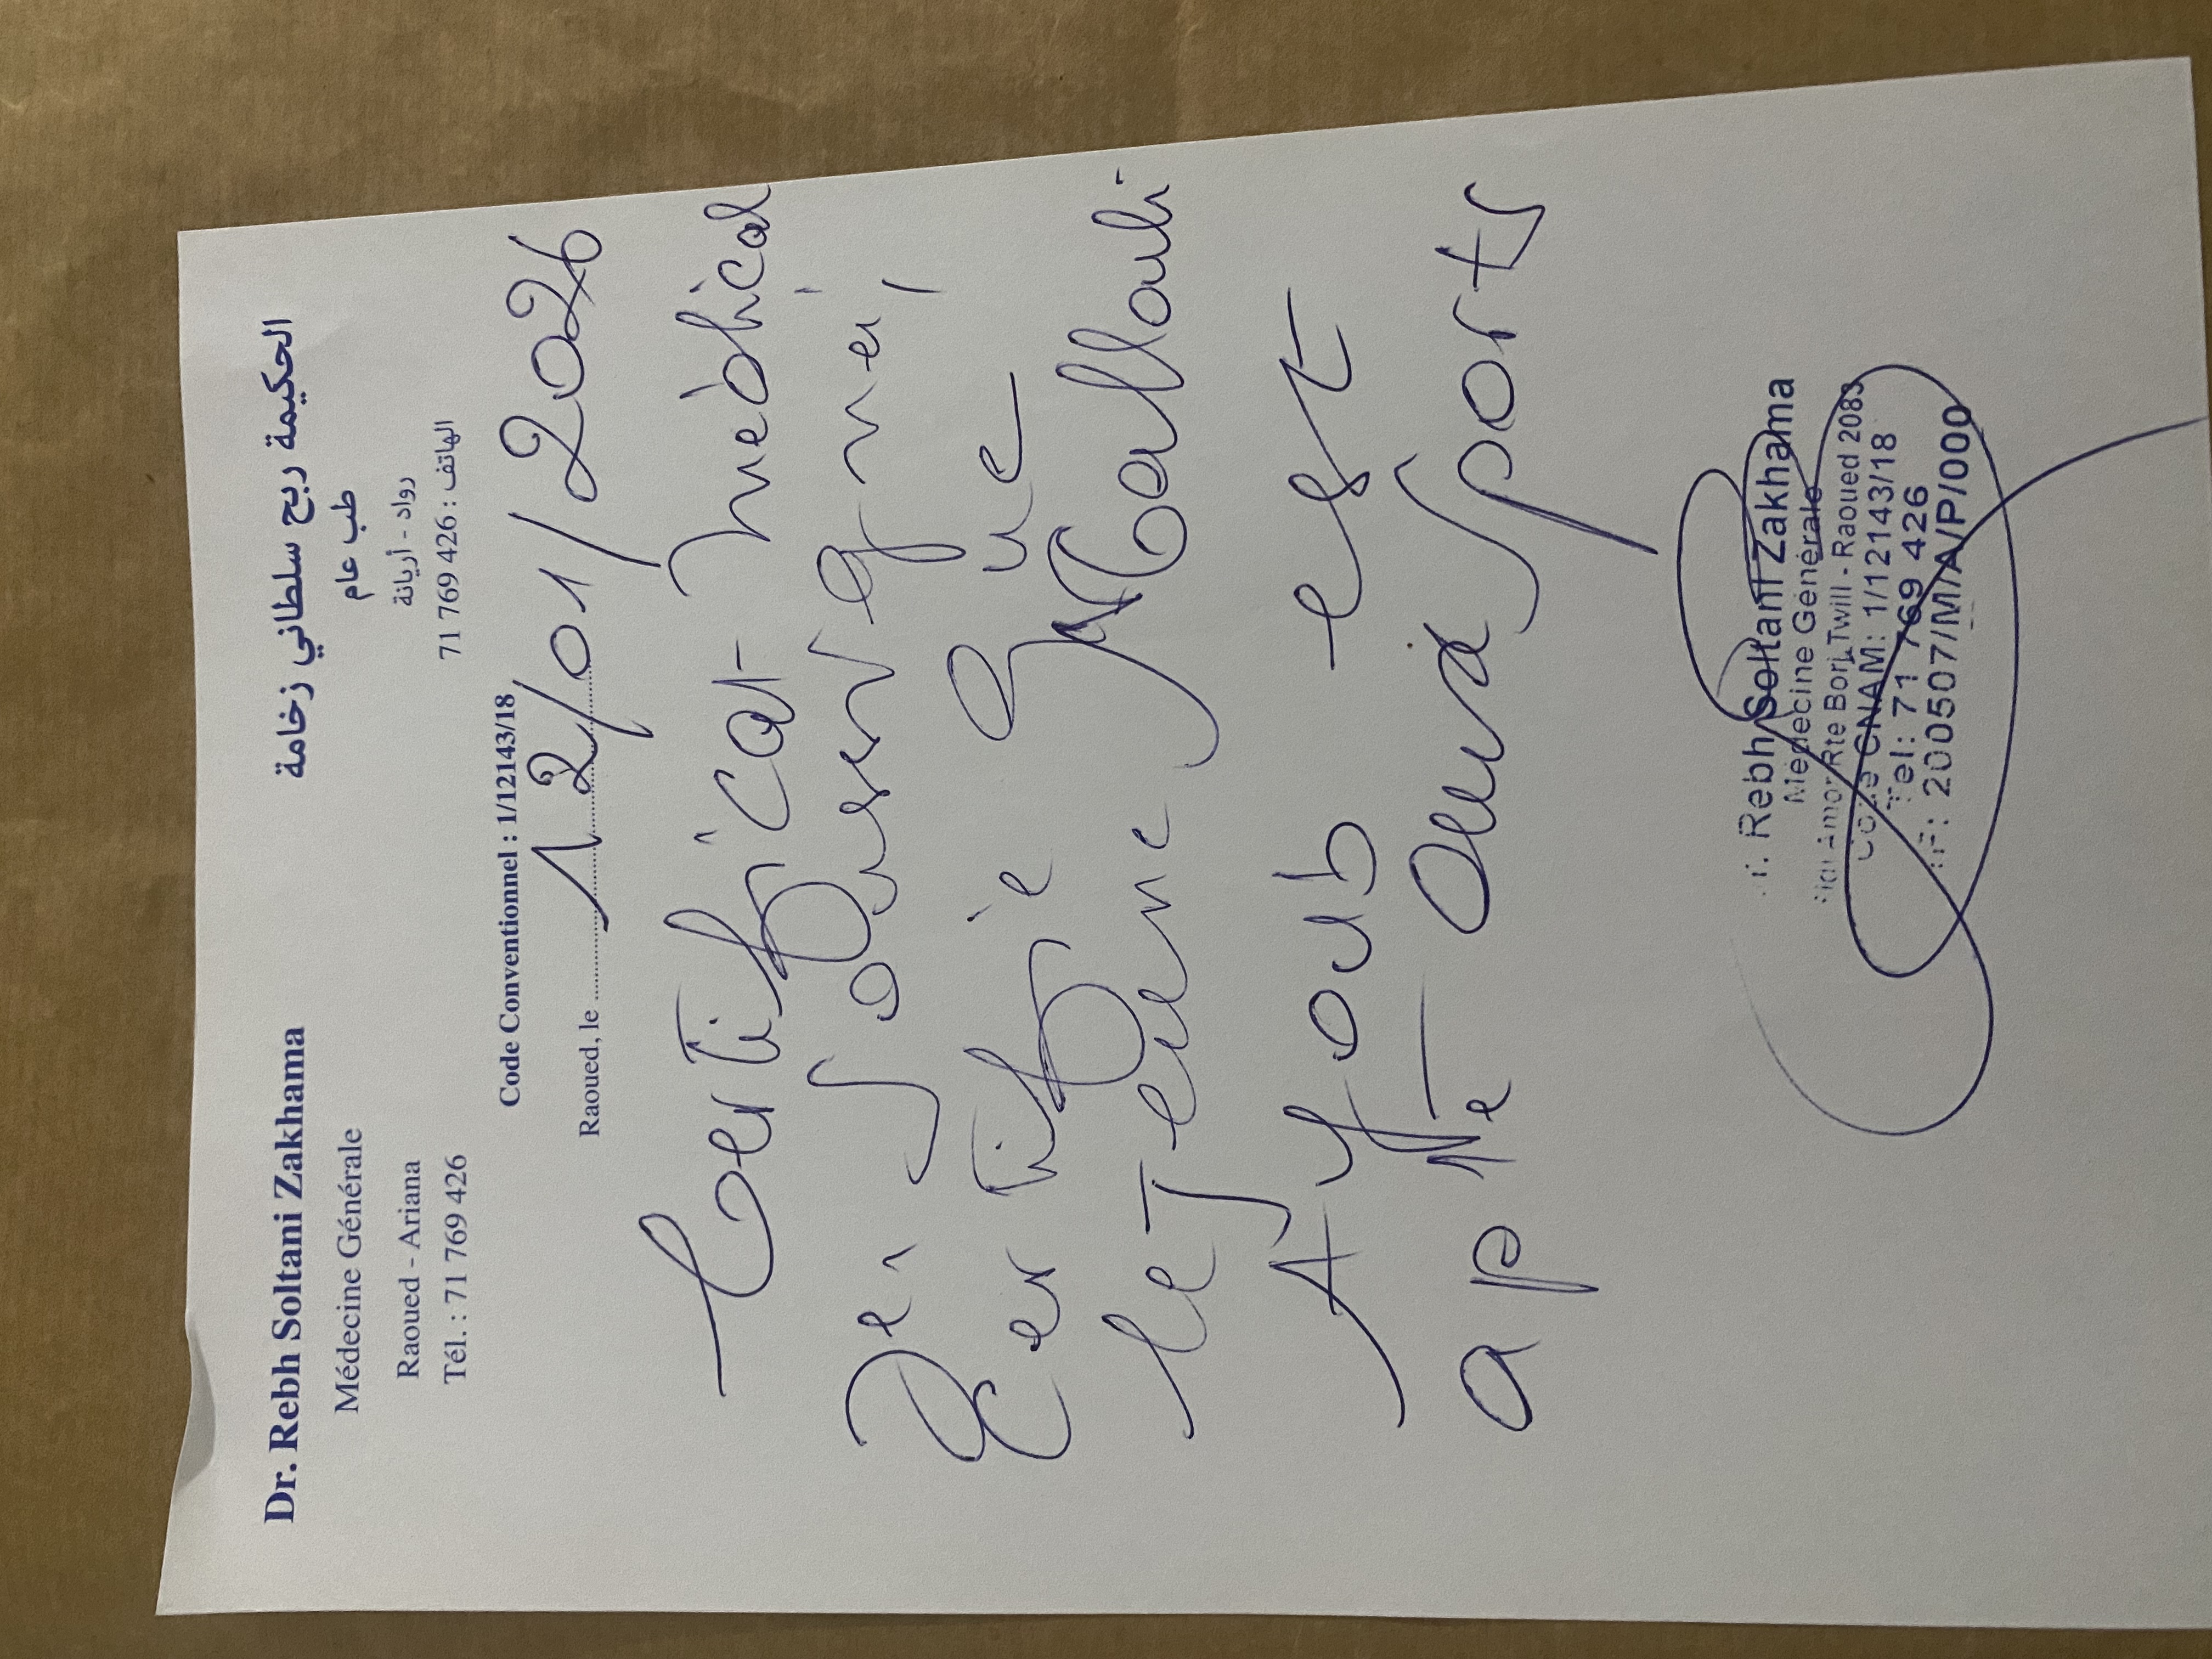 Dr. Rebh Soltani Zakhama
Médecine Générale
Raoued - Ariana
Tél. : 71 769 426
الحكيمة ربح سلطاني زخامة
طب عام
رواد - أريانة
الهاتف : 426 769 71
Code Conventionnel : 1/12143/18
Raoued, le 12/01/2026
Certificat médical
Je soussigné,
certifie que
le jeune
Ayoub est
apte aux sports
Rebh Soltani Zakhama
Médecine Générale
Rte Borj Twill - Raoued 2083
Code CNAM: 1/12143/18
Tel: 71 769 426
200507/M/A/P/000